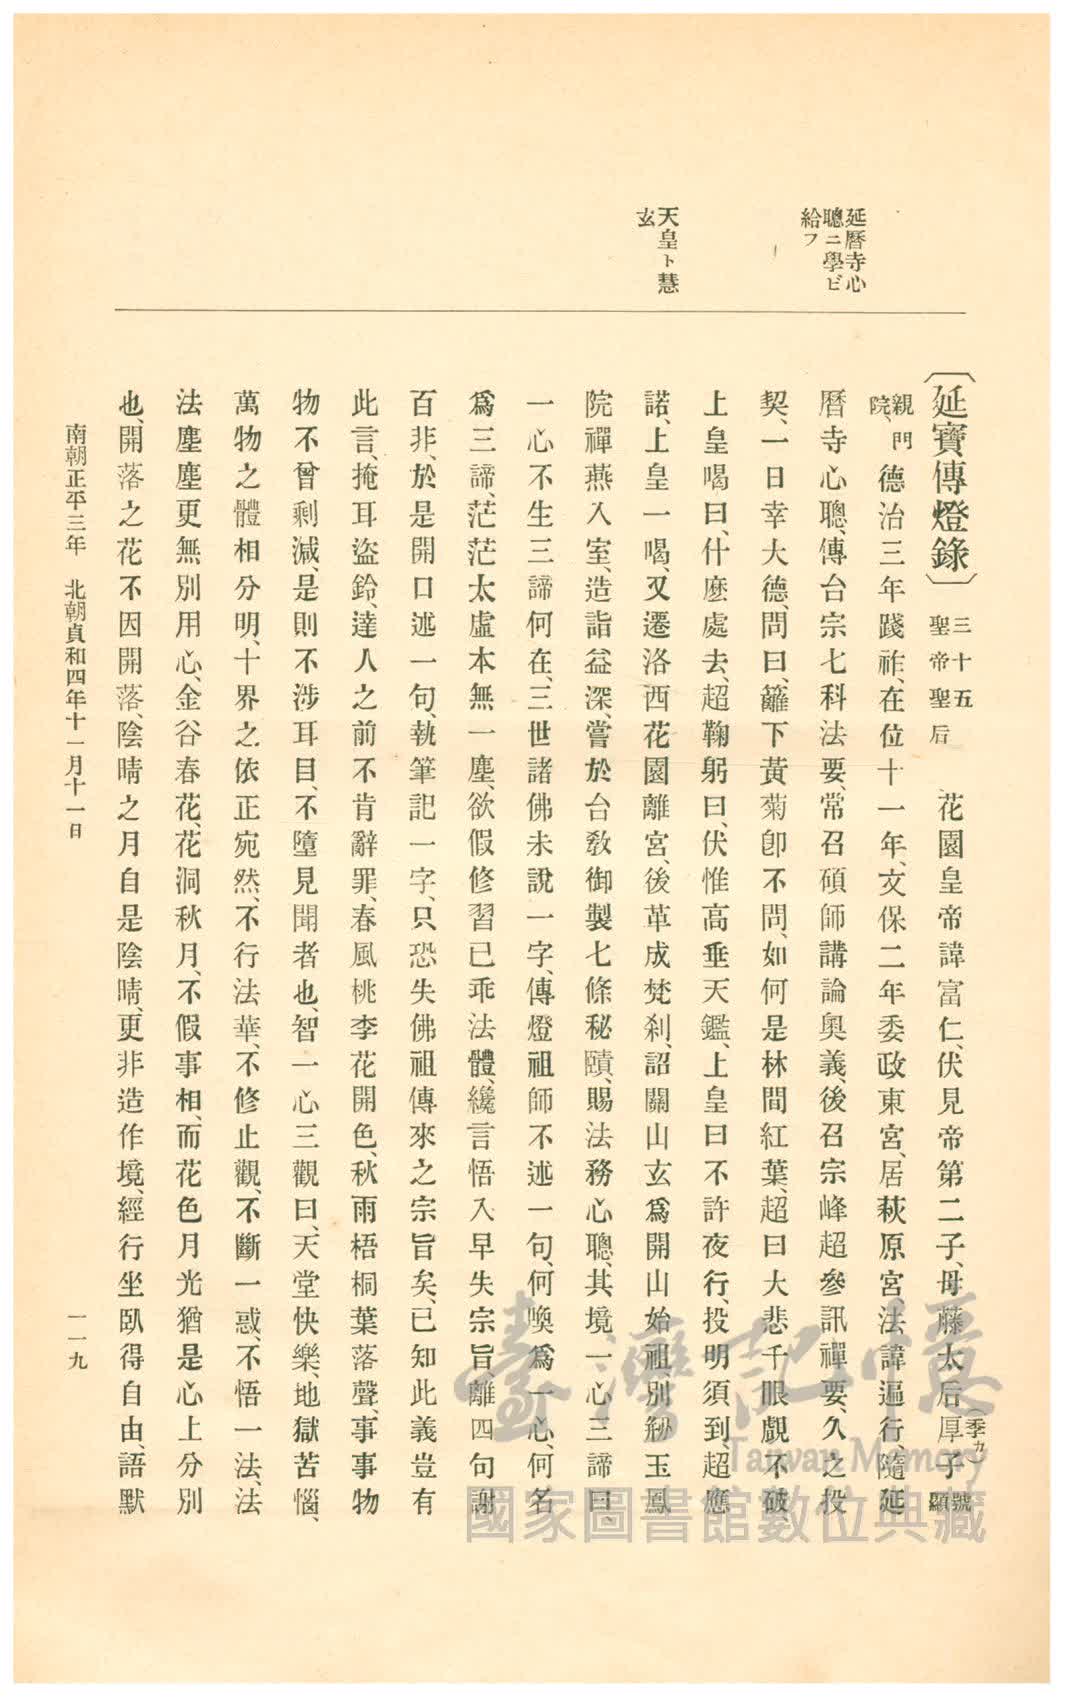 延曆寺心
聰ニ學ビ
給フ
天皇ト慧
玄
〔延寶傳燈錄〕三十五 聖帝聖后 花園皇帝諱富仁、伏見帝第二子、母藤太后厚(季カ)子號顯
親門院、德治三年踐祚、在位十一年、文保二年委政東宮、居萩原宮、法諱遍行、隨延
曆寺心聰、傳台宗七科法要、常召碩師講論奧義、後召宗峰超參訊禪要、久之投
契、一日幸大德、問曰、籬下黃菊卽不問、如何是林間紅葉、超曰大悲千眼覷不破、
上皇喝曰、什麽處去、超鞠躬曰、伏惟高垂天鑑、上皇曰不許夜行、投明須到、超應
諾、上皇一喝、又遷洛西花園離宮、後革成梵刹、詔關山玄爲開山始祖、別剏玉鳳
院禪燕入室、造詣益深、嘗於台敎御製七條秘賾、賜法務心聰、其境一心三諦曰、
一心不生三諦何在、三世諸佛未說一字、傳燈祖師不述一句、何喚爲一心、何名
爲三諦、茫茫太虛本無一塵、欲假修習已乖法體、纔言悟入早失宗旨、離四句謝
百非、於是開口述一句、執筆記一字、只恐失佛祖傳來之宗旨矣、已知此義豈有
此言、掩耳盜鈴、達人之前不肯辭罪、春風桃李花開色、秋雨梧桐葉落聲、事事物
物不曾剩減、是則不涉耳目、不墮見聞者也、智一心三觀曰、天堂快樂、地獄苦惱、
萬物之體相分明、十界之依正宛然、不行法華、不修止觀、不斷一惑、不悟一法、法
法塵塵更無別用心、金谷春花、花洞秋月、不假事相、而花色月光猶是心上分別
也、開落之花不因開落、陰晴之月自是陰晴、更非造作境、經行坐臥得自由、語默
南朝正平三年 北朝貞和四年十一月十一日
一一九
臺灣記憶
Taiwan Memory
國家圖書館數位典藏